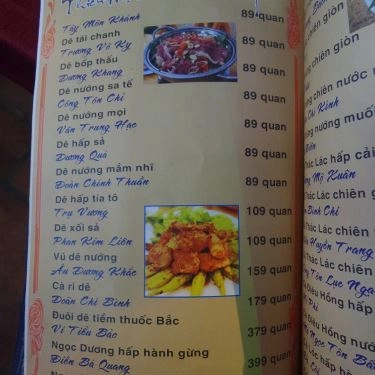 Tây Môn Khánh
89 quan
Dê tái chanh
Trương Vô Kỵ
89 quan
Dê bốp thấu
Dương Khang
89 quan
Dê nướng sa tế
Công Tôn Chỉ
89 quan
Dê nướng mọi
Vân Trung Hạc
89 quan
Dê hấp sả
Dương Quá
89 quan
Dê nướng mắm nhĩ
Đoàn Chính Thuần
89 quan
Dê hấp tía tô
Trụ Vương
109 quan
Dê xối sả
Phan Kim Liên
109 quan
Vú dê nướng
Âu Dương Khắc
159 quan
Cà ri dê
Doãn Chí Bình
179 quan
Đuôi dê tiềm thuốc Bắc
Vi Tiểu Bảo
379 quan
Ngọc Dương hấp hành gừng
Điền Bá Quang
399 quan
chiên giòn
chiên nước
Chí Kính
nướng muối
Thác Lác hấp cải
Mộ Xuân
Thác Lác chiên
Bình Chi
Thác Lác chiên
Huyền Trang
Thác Lác chiên
Tôn Lục Nga
Điêu Hồng hấp
Phi
Điêu Hồng nướ
Ngọc Tôn Bất